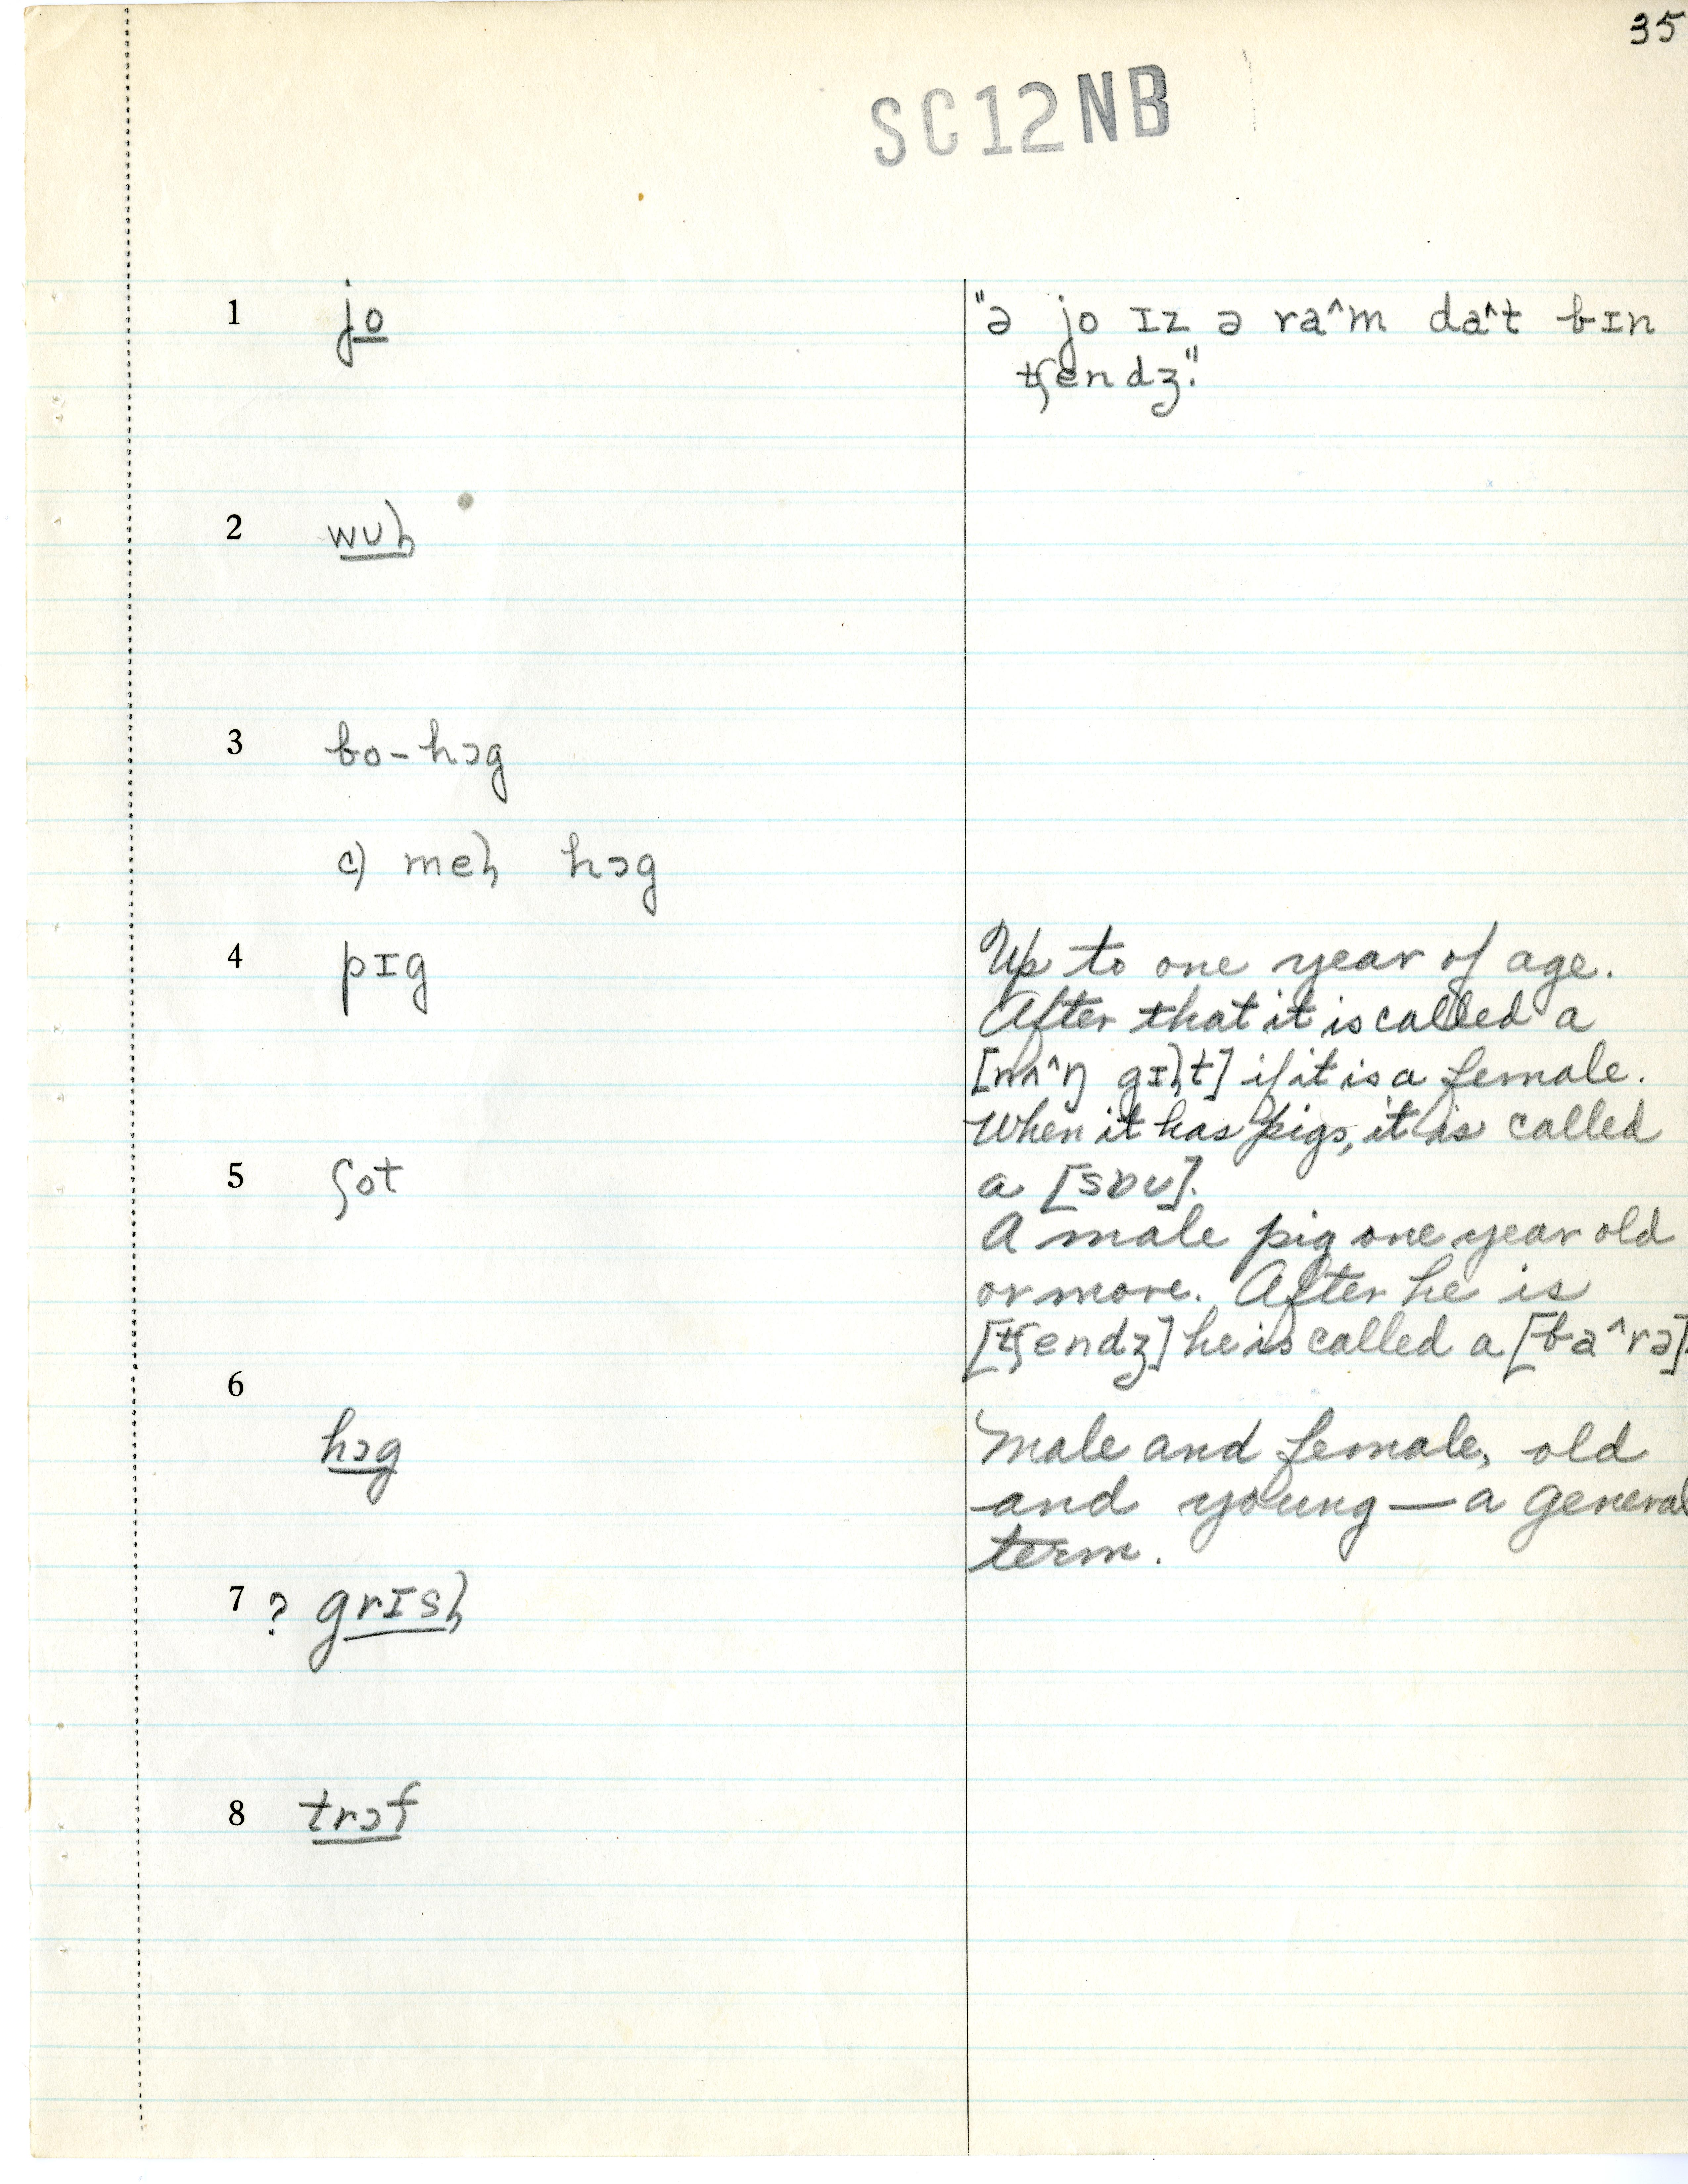 35
SC12NB
1 jo "ə jo ɪz ə ra^m da^t bɪn
tʃendʒ."
2 wulˌ
3 bo-hɔg
c) melˌ hɔg
4 pɪg Up to one year of age.
After that it is called a
[nʌ^ŋ gɪlˌt] if it is a female.
When it has pigs, it is called
5 ʃot a [sɒʊ].
A male pig one year old
or more. After he is
[tʃendʒ] he is called a [ba^rə].
6
hɔg Male and female, old
and young—a general
term.
7 ? grɪslˌ
8 trɔf